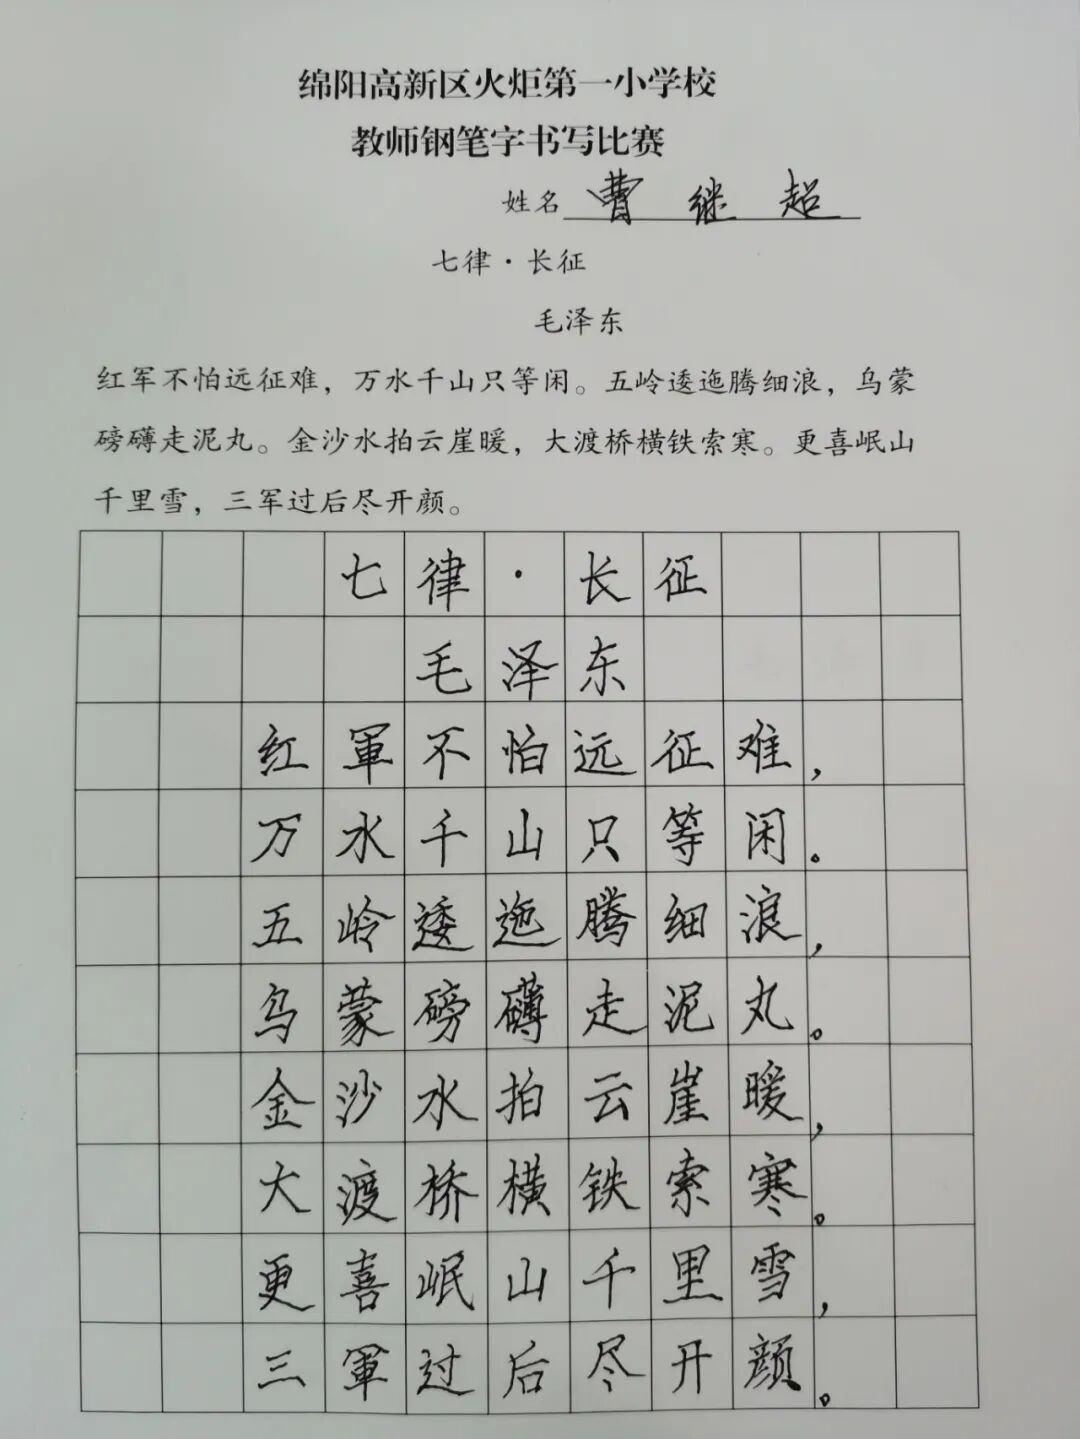 绵阳高新区火炬第一小学校
教师钢笔字书写比赛
姓名 曹继超
七律·长征
毛泽东
红军不怕远征难，万水千山只等闲。五岭逶迤腾细浪，乌蒙
磅礴走泥丸。金沙水拍云崖暖，大渡桥横铁索寒。更喜岷山
千里雪，三军过后尽开颜。
七律·长征
毛泽东
红軍不怕远征难，
万水千山只等闲。
五岭逶迤腾细浪，
乌蒙磅礴走泥丸。
金沙水拍云崖暖，
大渡桥横铁索寒。
更喜岷山千里雪，
三軍过后尽开颜。